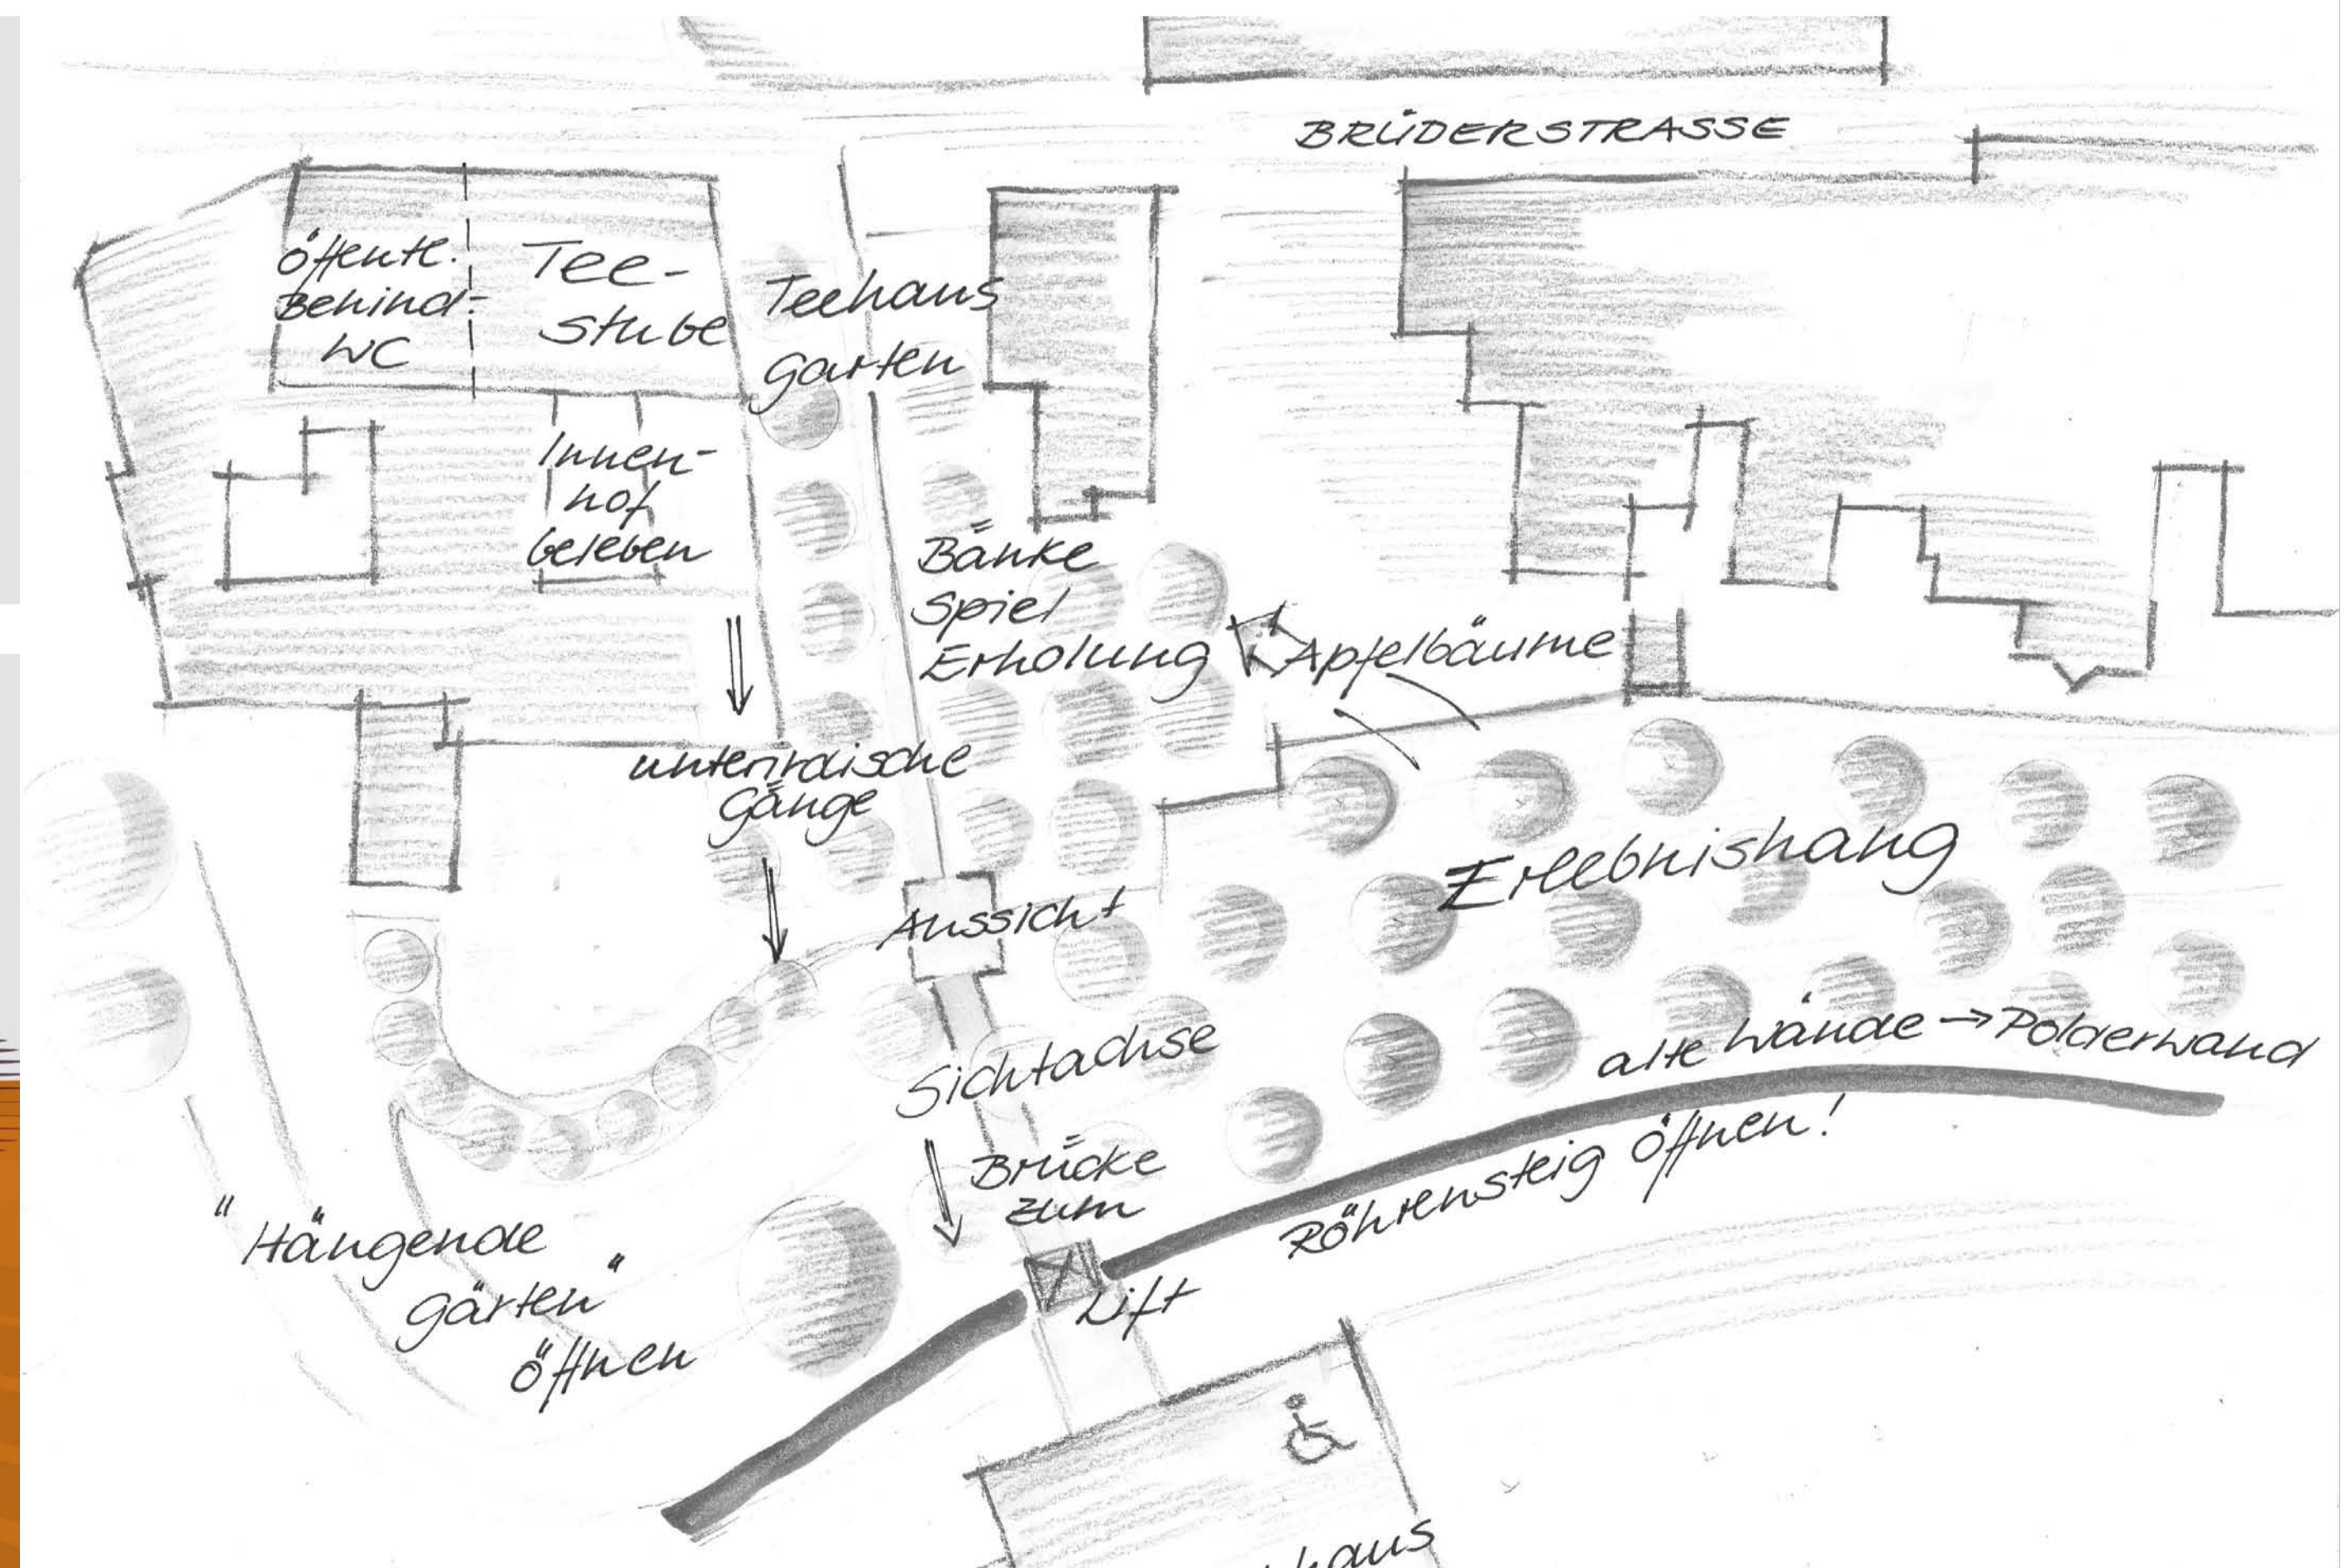 BRÜDERSTRASSE
öffentl.
Behind.
WC
Tee-
stube
Teehaus
garten
Innen-
hof
beleben
Bänke
Spiel
Erholung
Apfelbäume
unterirdische
Gänge
Erlebnishang
Aussicht
Sichtachse
alte Wände → Polderwand
Brücke
zum
Lift
Röhrensteig öffnen!
"Hängende
gärten"
öffnen
haus